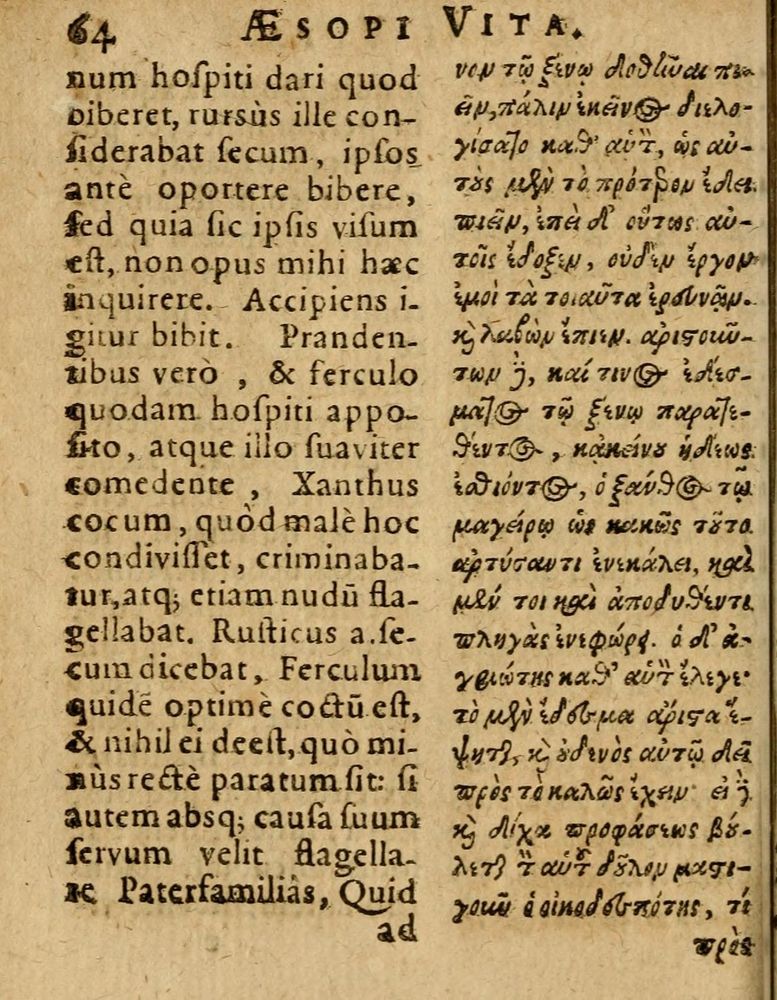 64 ÆSOPI VITA.
num hoſpiti dari quod
biberet, rursùs ille con-
ſiderabat ſecum, ipſos
antè oportere bibere,
ſed quia ſic ipſis viſum
eſt, non opus mihi hæc
inquirere. Accipiens i-
gitur bibit. Pranden-
tibus verò, & ferculo
quodam hoſpiti appo-
ſito, atque illo ſuaviter
comedente, Xanthus
cocum, quòd malè hoc
condiviſſet, criminaba-
tur, atq; etiam nudū fla-
gellabat. Ruſticus a.ſe-
cum dicebat, Ferculum
quidē optimè coctū eſt,
& nihil ei deeſt, quò mi-
nùs rectè paratum ſit: ſi
autem absq; cauſa ſuum
ſervum velit flagella-
re Paterfamiliâs, Quid
ad
νον τῷ ξένῳ δοθῆναι πι-
εῖν, πάλιν ἐκεῖνος διελο-
γίσατο καθ' αὑτὸν, ὡς αὐ-
τοὺς μὲν τὸ πρότερον ἔδει
πιεῖν, ἐπεὶ δ' οὕτως αὐ-
τοῖς ἔδοξεν, οὐδὲν ἔργον
ἐμοὶ τὰ τοιαῦτα ἐρευνᾷν.
καὶ λαβὼν ἔπιεν. ἀριστών-
των δὲ, καί τινος ἐδέσ-
ματος τῷ ξένῳ παρατε-
θέντος, κᾀκείνου ἡδέως
ἐσθίοντος, ὁ ξάνθος τῷ
μαγείρῳ ὡς κακῶς τοῦτο
ἀρτύσαντι ἐνεκάλει, καὶ
μέν τοι καὶ ἀποδυθέντι
πληγὰς ἐνεφόρει. ὁ δ' ἀ-
γριώτης καθ' αὑτὸν ἔλεγε·
τὸ μὲν ἔδεσμα ἄριστα ἕ-
ψηται, καὶ οὐδενὸς αὐτῷ δεῖ
πρὸς τὸ καλῶς ἔχειν· εἰ δὲ
καὶ δίχα προφάσεως βού-
λεται τὸν αὑτοῦ δοῦλον μαστι-
γοῦν ὁ οἰκοδεσπότης, τί
πρὸς